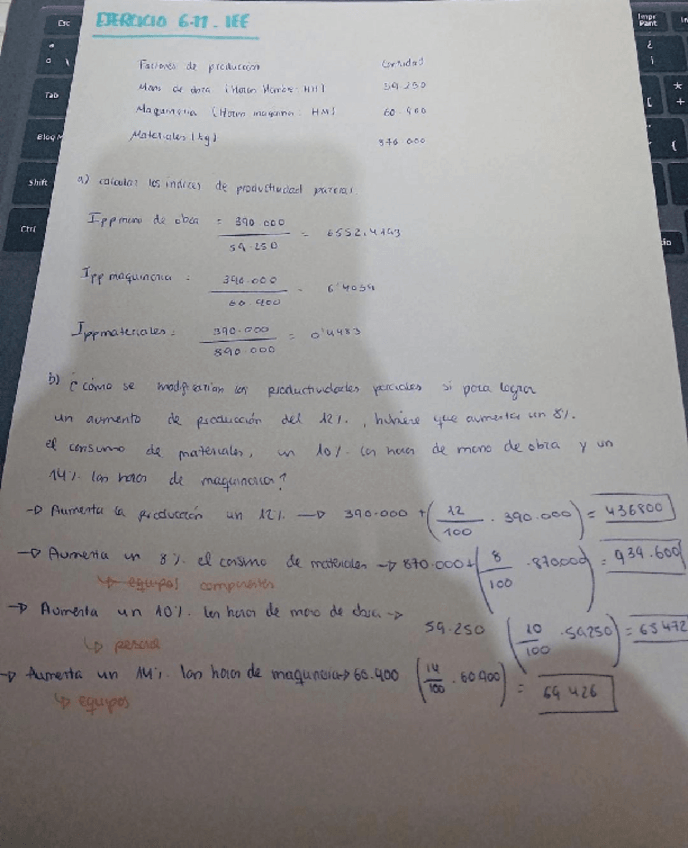 Esc
Impr Pant
Tab
Bloq M
Shift
Ctrl
EJERCICIO 6.11 - IEE
Factores de producción Cantidad
Mano de obra (Horas Hombre. HH) 59.250
Maquinaria (Horas maquina. HM) 60.900
Materiales (kg) 870.000
a) calcular los indices de productividad parcial
Ipp mano de obra = 390 000 / 59.250 =
Ipp maquinaria = 390.000 / 60.900 =
Ipp materiales = 390.000 / 890.000 = 0'4483
b) ¿ cómo se modificarían las productividades parciales si para lograr
un aumento de producción del 12%, hubiere que aumentar un 8%.
el consumo de materiales, un 10% las horas de mano de obra y un
14% las horas de maquinaria?
→ Aumenta la producción un 12% → 390.000 + (12/100 . 390.000) = 436800
→ Aumenta un 8% el consumo de materiales → 870.000 + (8/100 . 870000) = 939.600
↳ equipos componentes
→ Aumenta un 10% las horas de mano de obra →
59.250 (10/100 . 59250) = 65472
↳ personal
→ Aumenta un 14% las horas de maquinaria → 60.900 (14/100 . 60.900) = 69426
↳ equipos